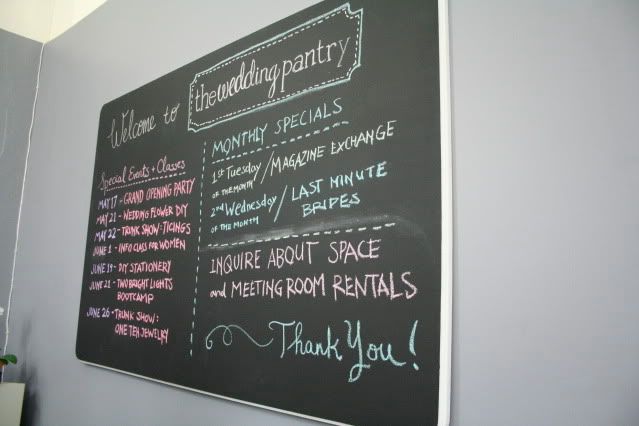 Welcome to
theweddingpantry
Special Events + Classes
MAY 17 - GRAND OPENING PARTY
MAY 21 - WEDDING FLOWER DIY
MAY 22 - TRUNK SHOW: TICINGS
JUNE 1 - INFO CLASS FOR WOMEN
JUNE 19 - DIY STATIONERY
JUNE 21 - TWO BRIGHT LIGHTS
BOOTCAMP
JUNE 26 - TRUNK SHOW:
ONE TEN JEWELRY
MONTHLY SPECIALS
1ST Tuesday / MAGAZINE EXCHANGE
OF THE MONTH
2ND Wednesday / LAST MINUTE
OF THE MONTH BRIDES
INQUIRE ABOUT SPACE
and MEETING ROOM RENTALS
Thank You!